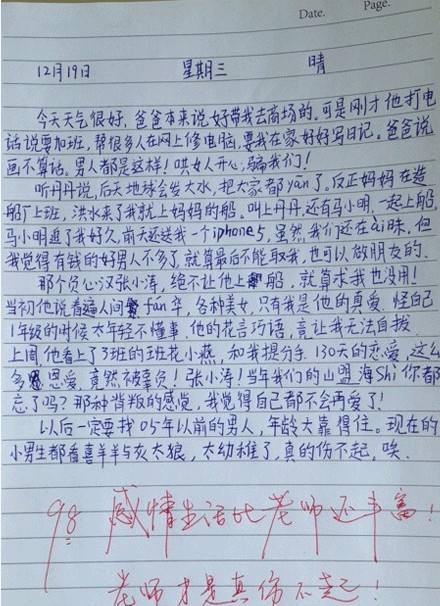 Date. Page.
12月19日 星期三 晴
今天天气很好,爸爸本来说好带我去商场的。可是刚才他打电
话说要加班,帮很多人在网上修电脑,要我在家好好写日记。爸爸说
画不算话。男人都是这样!哄女人开心,骗我们!
听丹丹说,后天地球会发大水,把大家都yān了。反正妈妈在造
船厂上班,洪水来了我就上妈妈的船。叫上丹丹,还有马小明,一起上船,
马小明追了我好久,前天还送我一个iphone5,虽然我们还在ài昧,但
我觉得有钱的好男人不多了,就算最后不能取我,也可以做朋友的。
那个负心汉张小涛,绝不让他上船,就算求我也没用!
当初他说看遍人间fán华,各种美女,只有我是他的真爱.怪自己
1年级的时候太年轻不懂事.他的花言巧语,竟让我无法自拔
上周他看上了3班的班花小燕,和我提分手.130天的恋爱,这么
多恩爱,竟然被辜负!张小涛!当年我们的山盟海Shì你都
忘了吗?那种背叛的感觉,我觉得自己都不会再爱了!
以后一定要找05年以前的男人,年龄大靠得住。现在的
小男生都看喜羊羊与灰太狼,太幼稚了,真的伤不起,唉.
98 感情生活比老师还丰富!
老师才是真伤不起!